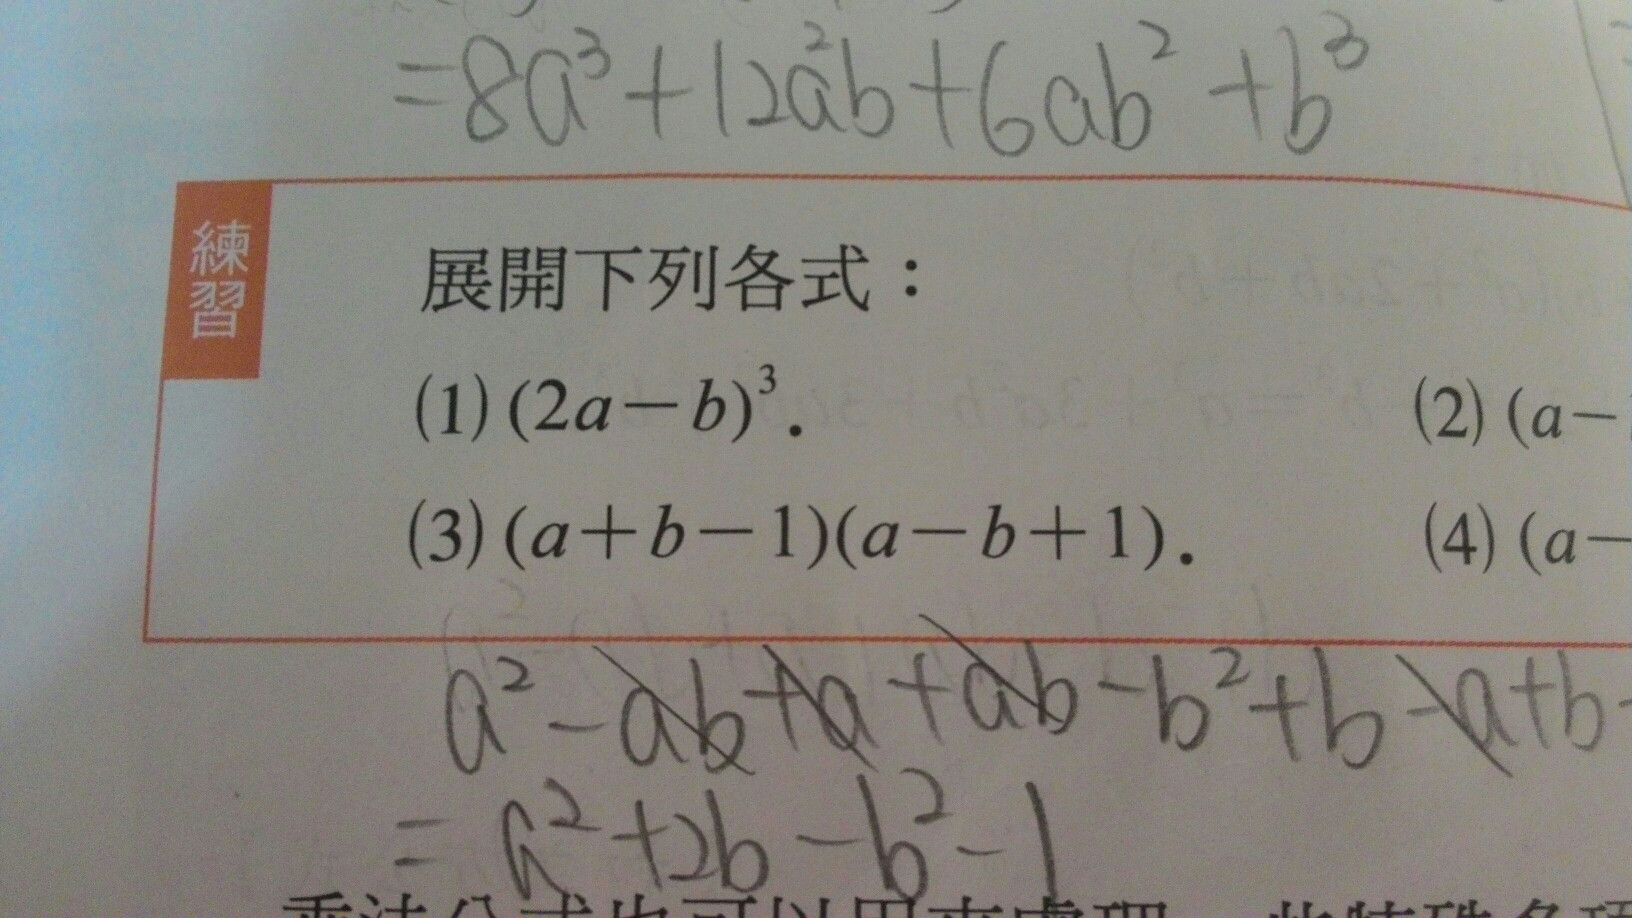 =8a³+12a²b+6ab²+b³
練習
展開下列各式：
(1) (2a－b)³．
(2) (a－
(3) (a＋b－1)(a－b＋1)．
(4) (a－
a²-ab+a+ab-b²+b-a+b-
=a²+2b-b²-1